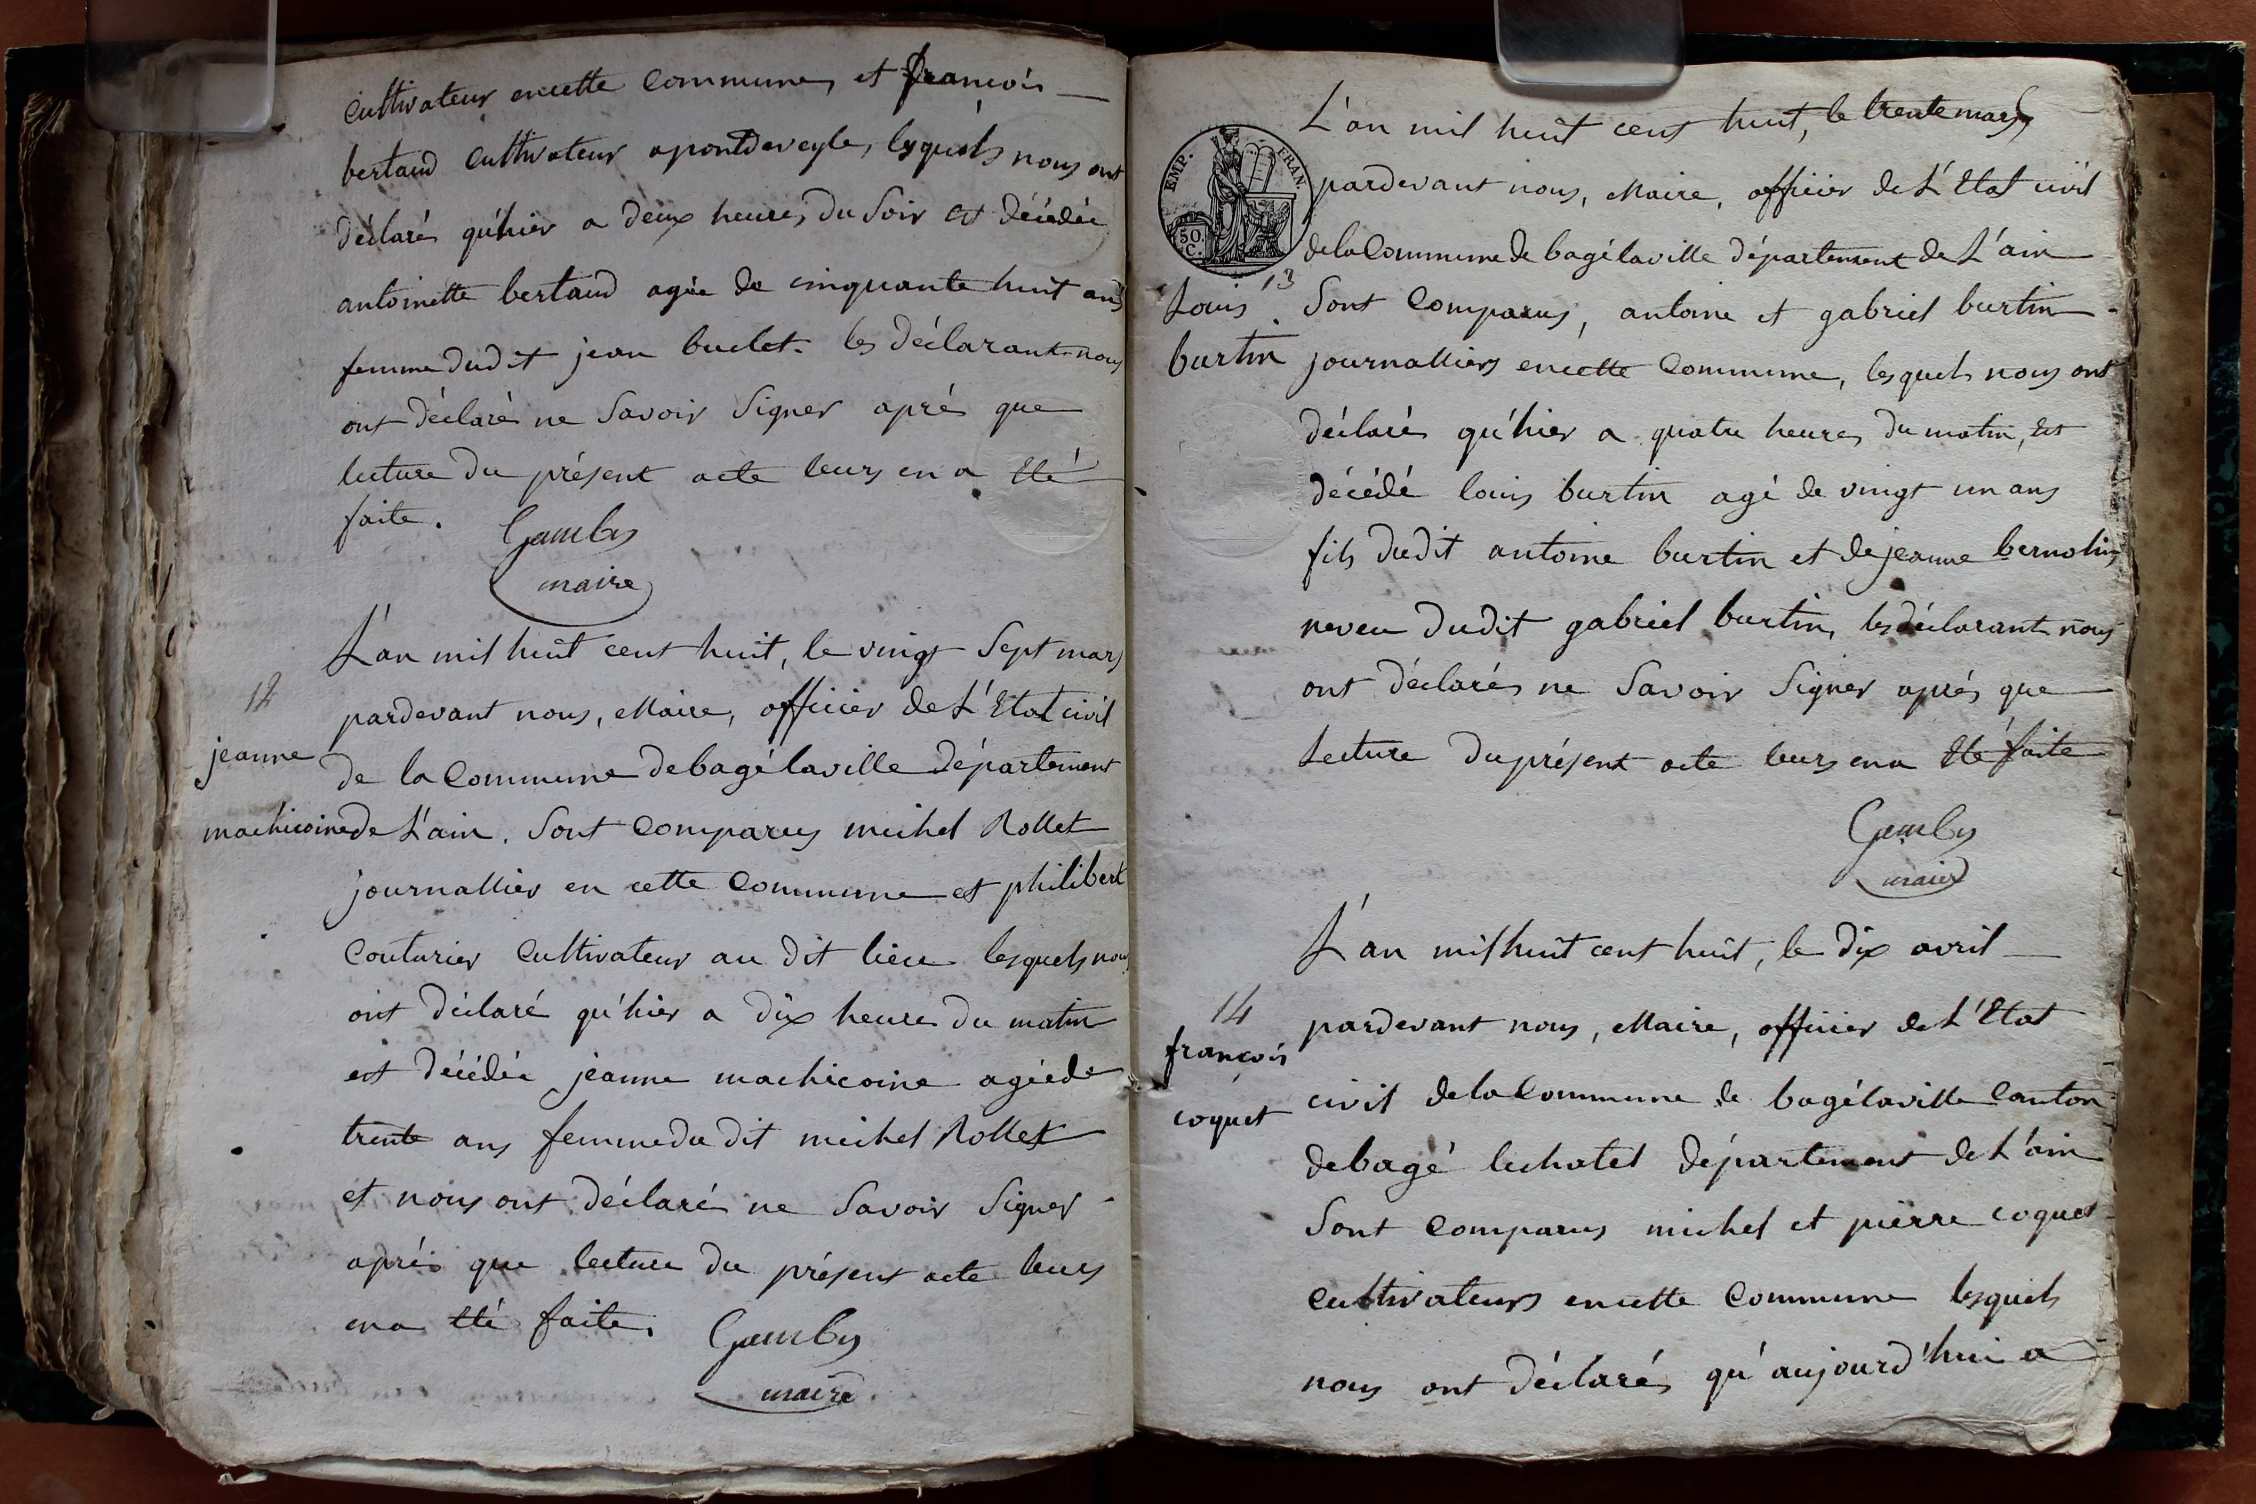 cultivateur encette commune, et françois
bertaud cultivateur apontdeveyle, lesquels nous ont
déclarés qu'hier a deux heures du soir est décédée
antoinette bertaud agée de cinquante huit ans
femme dudit jean buclet. les déclarants nous
ont déclarés ne savoir signer aprés que
lecture du présent acte leurs en a été
faite.
Gamby
maire
L'an mil huit cent huit, le vingt sept mars
12
pardevant nous, Maire, officier de L'Etat civil
jeanne
de la commune debagélaville département
machicoine
de L'ain. sont comparus michel Rollet
journallier en cette commune et philibert
couturier cultivateur au dit lieu lesquels nous
ont déclaré qu'hier a dix heures du matin
est décédée jeanne machicoine agéede
trente ans femmedu dit michel Rollet
et nous ont déclarés ne savoir signer
aprés que lecture du présent acte leurs
ena été faite.
Gamby
maire
L'an mil huit cent huit, le trente mars
EMP. FRAN.
50. C.
pardevant nous, Maire, officier de L'Etat civil
delacommune de bagélaville département de L'ain
13
Louis
sont comparus, antoine et gabriel burtin
burtin
journalliers encette commune, lesquels nous ont
déclarés qu'hier a quatre heures du matin, est
décédé louis burtin agé de vingt un ans
fils dudit antoine burtin et dejeanne bernolin
neveu dudit gabriel burtin, lesdéclarant nous
ont déclarés ne savoir signer aprés que
Lecture duprésent acte leurs ena été faite
Gamby
maire
L'an mil huit cent huit, le dix avril
14
pardevant nous, Maire, officier de L'Etat
françois
civil delacommune de bagélaville canton
coquet
debagé lechatel département de L'ain
sont comparus michel et pierre coquet
cultivateurs encette commune lesquels
nous ont déclarés qu'aujourd'hui a